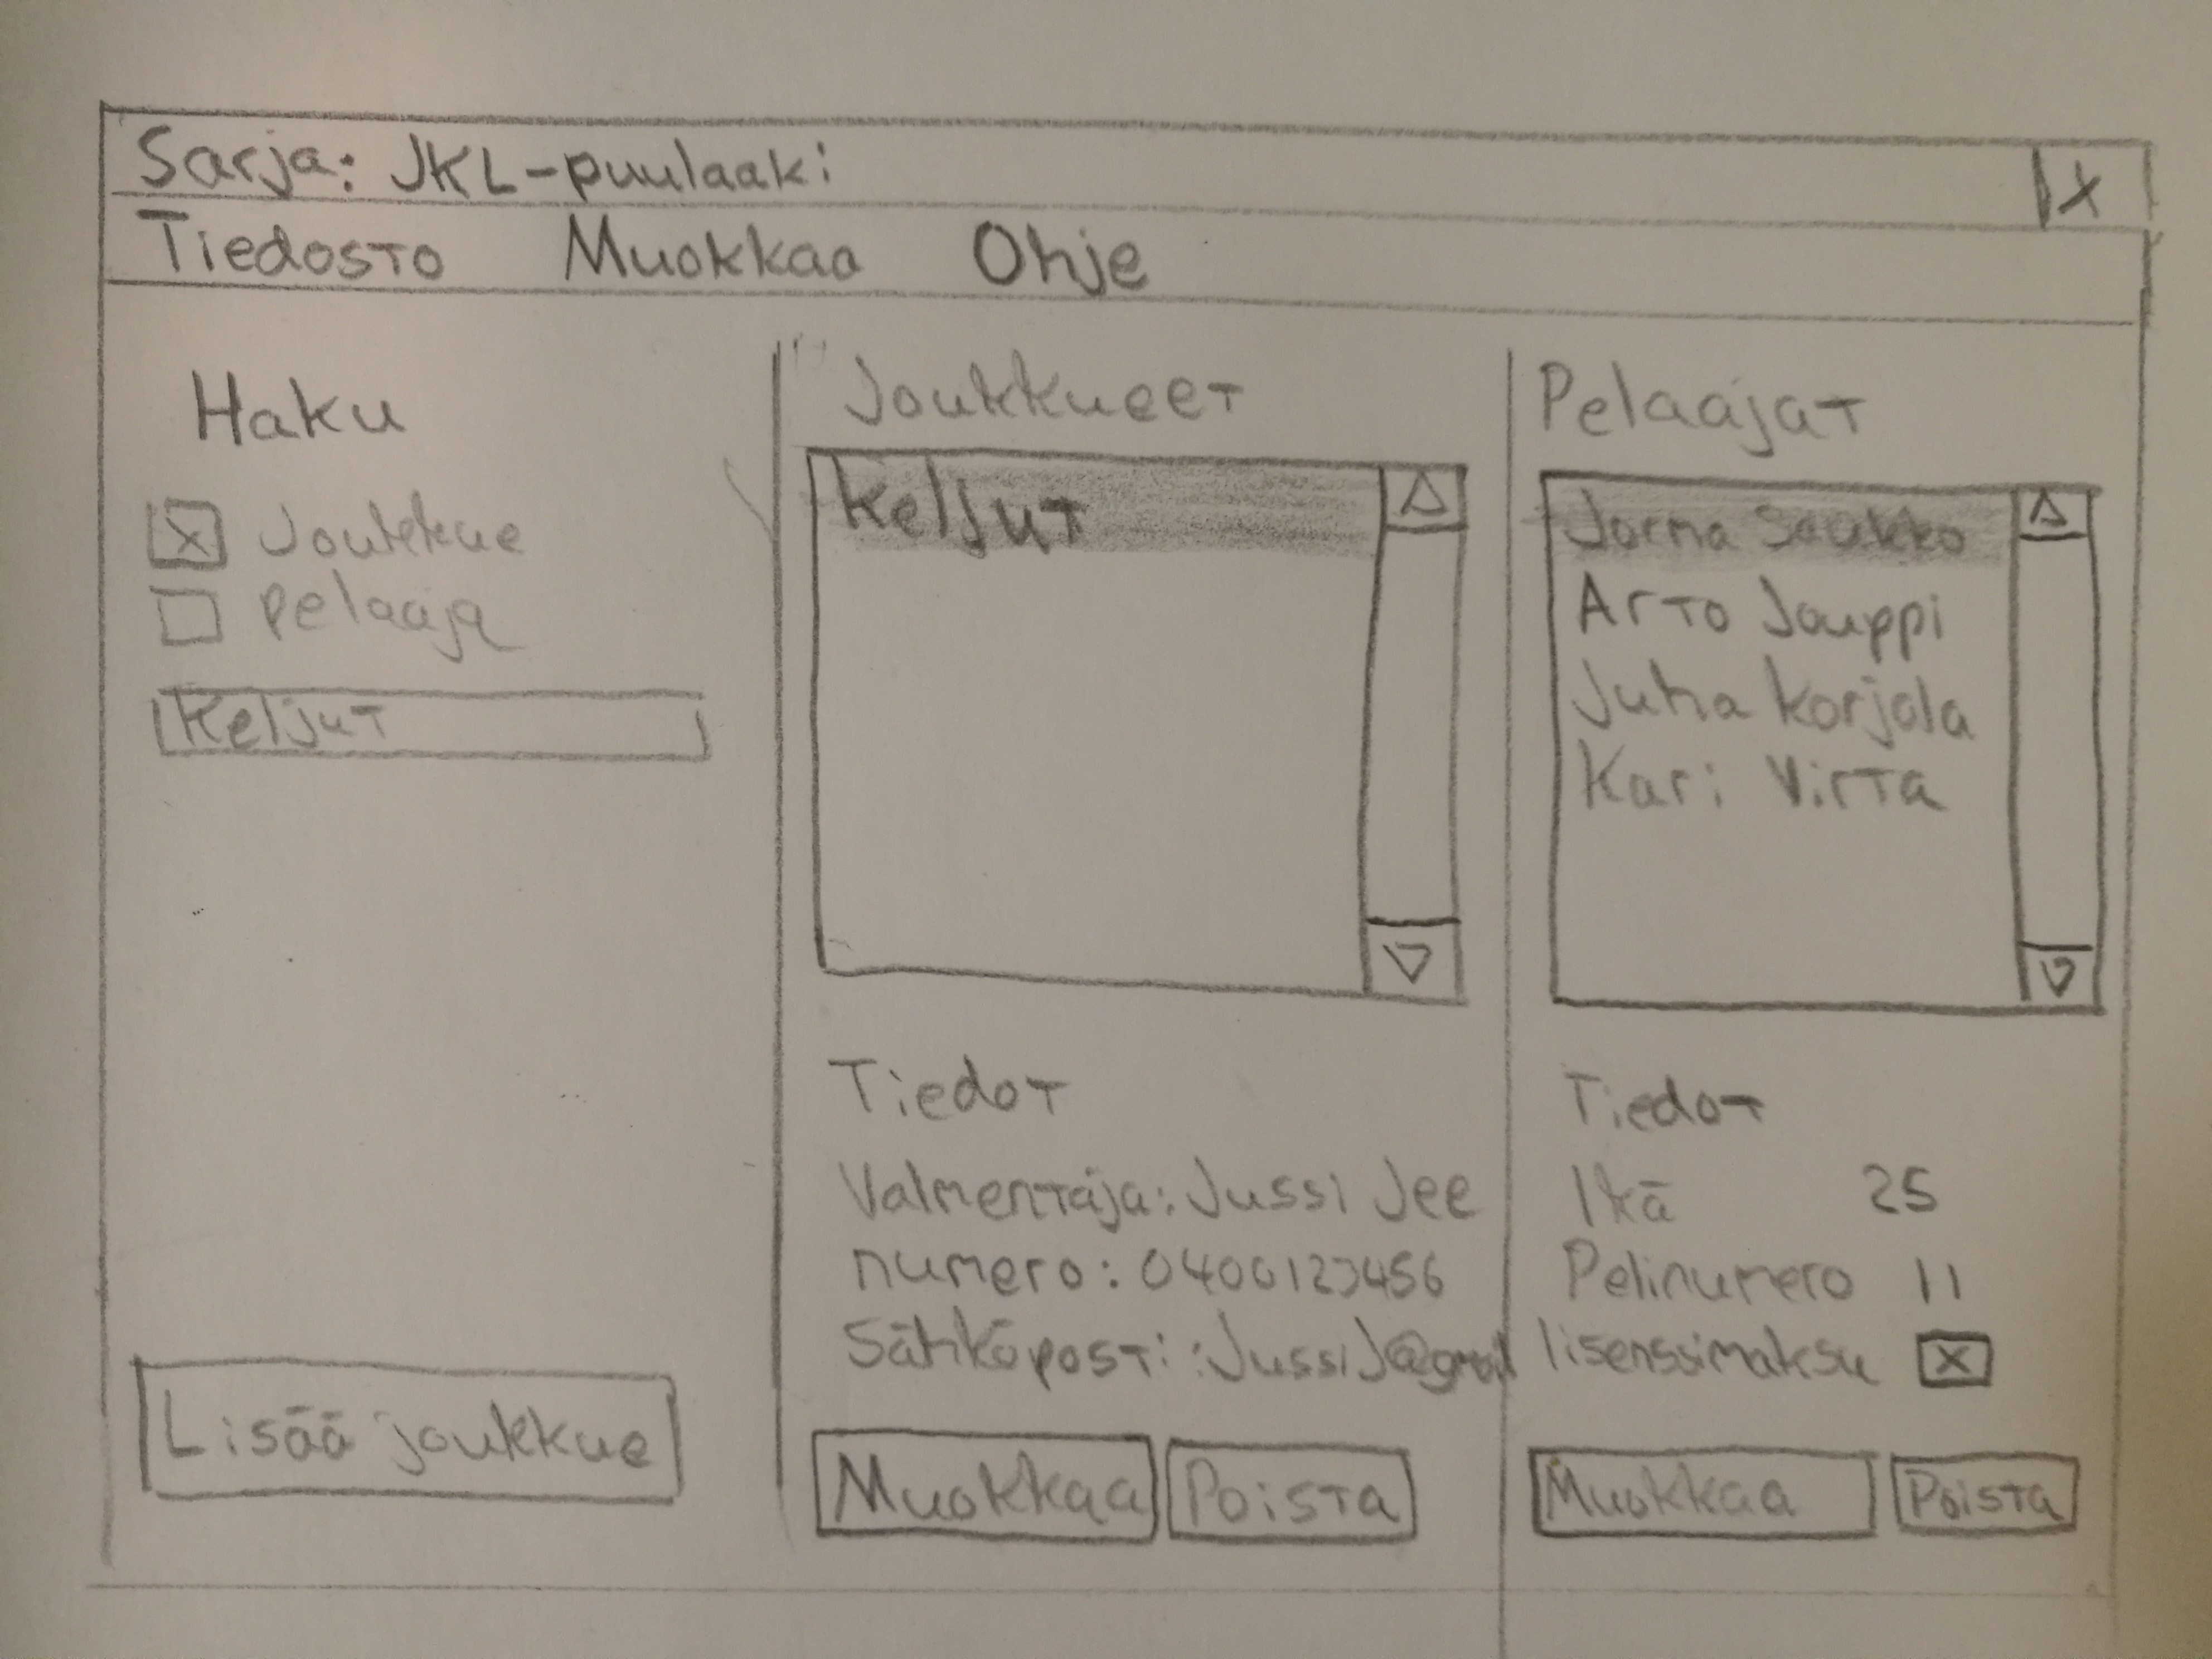 Sarja: JKL-puulaaki X
Tiedosto Muokkaa Ohje
Haku
X Joukkue
pelaaja
Keljut
Lisää joukkue
Joukkueet
Keljut
Tiedot
Valmentaja: Jussi Jee
numero: 0400123456
Sähköposti: JussiJ@gmail
Muokkaa Poista
Pelaajat
Jorma Saukko
Arto Jauppi
Juha Korjala
Kari Virta
Tiedot
Ikä 25
Pelinumero 11
lisenssimaksu X
Muokkaa Poista